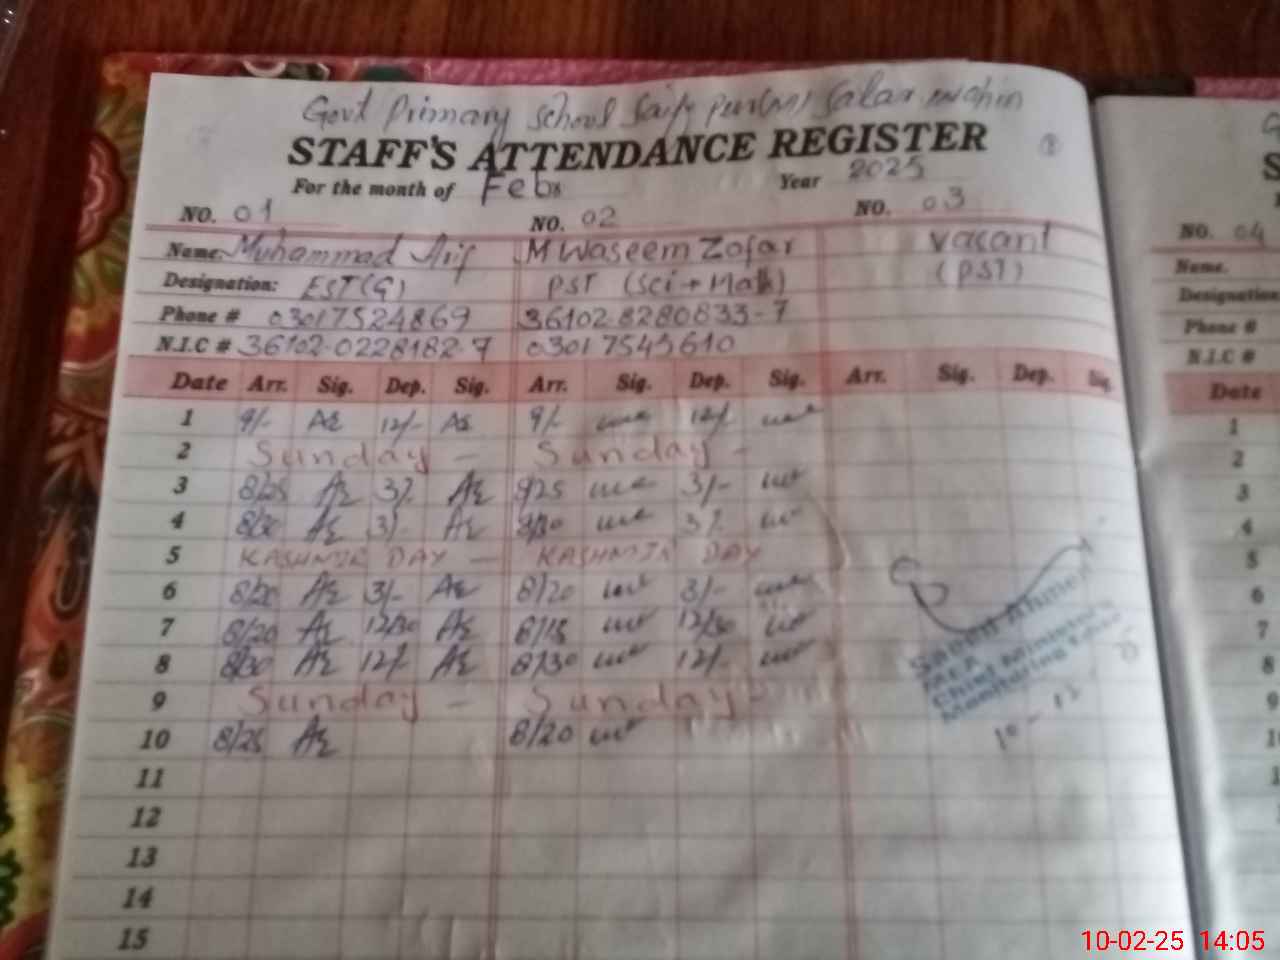 Govt Primary School Saify pur(M) Salar wahin
STAFF'S ATTENDANCE REGISTER
For the month of Feb Year 2025
NO. 01 NO. 02 NO. 03
Name: Muhammad Arif M Waseem Zafar Vacant
Designation: EST(G) PST (Sci + Math) (PST)
Phone # 03017524869 36102-8280833-7
N.I.C # 36102-0228182-7 03017545610
Date Arr. Sig. Dep. Sig. Arr. Sig. Dep. Sig. Arr. Sig. Dep. Sig.
1 9/- 12/- 9/- 12/-
2 Sunday - Sunday -
3 8/25 3/- 8/25 3/-
4 8/30 3/- 8/30 3/-
5 KASHMIR DAY - KASHMIR DAY
6 8/20 3/- 8/20 3/-
7 8/20 12/30 8/15 12/30
8 8/30 12/- 8/30 12/-
9 Sunday - Sunday
10 8/25 8/20
11
12
13
14
15
Ahmed
MEA
Chief Minister's
Monitoring Force
NO. 04
Name.
Designation
Phone #
N.I.C #
Date
1
2
3
4
5
6
7
8
9
10-02-25 14:05